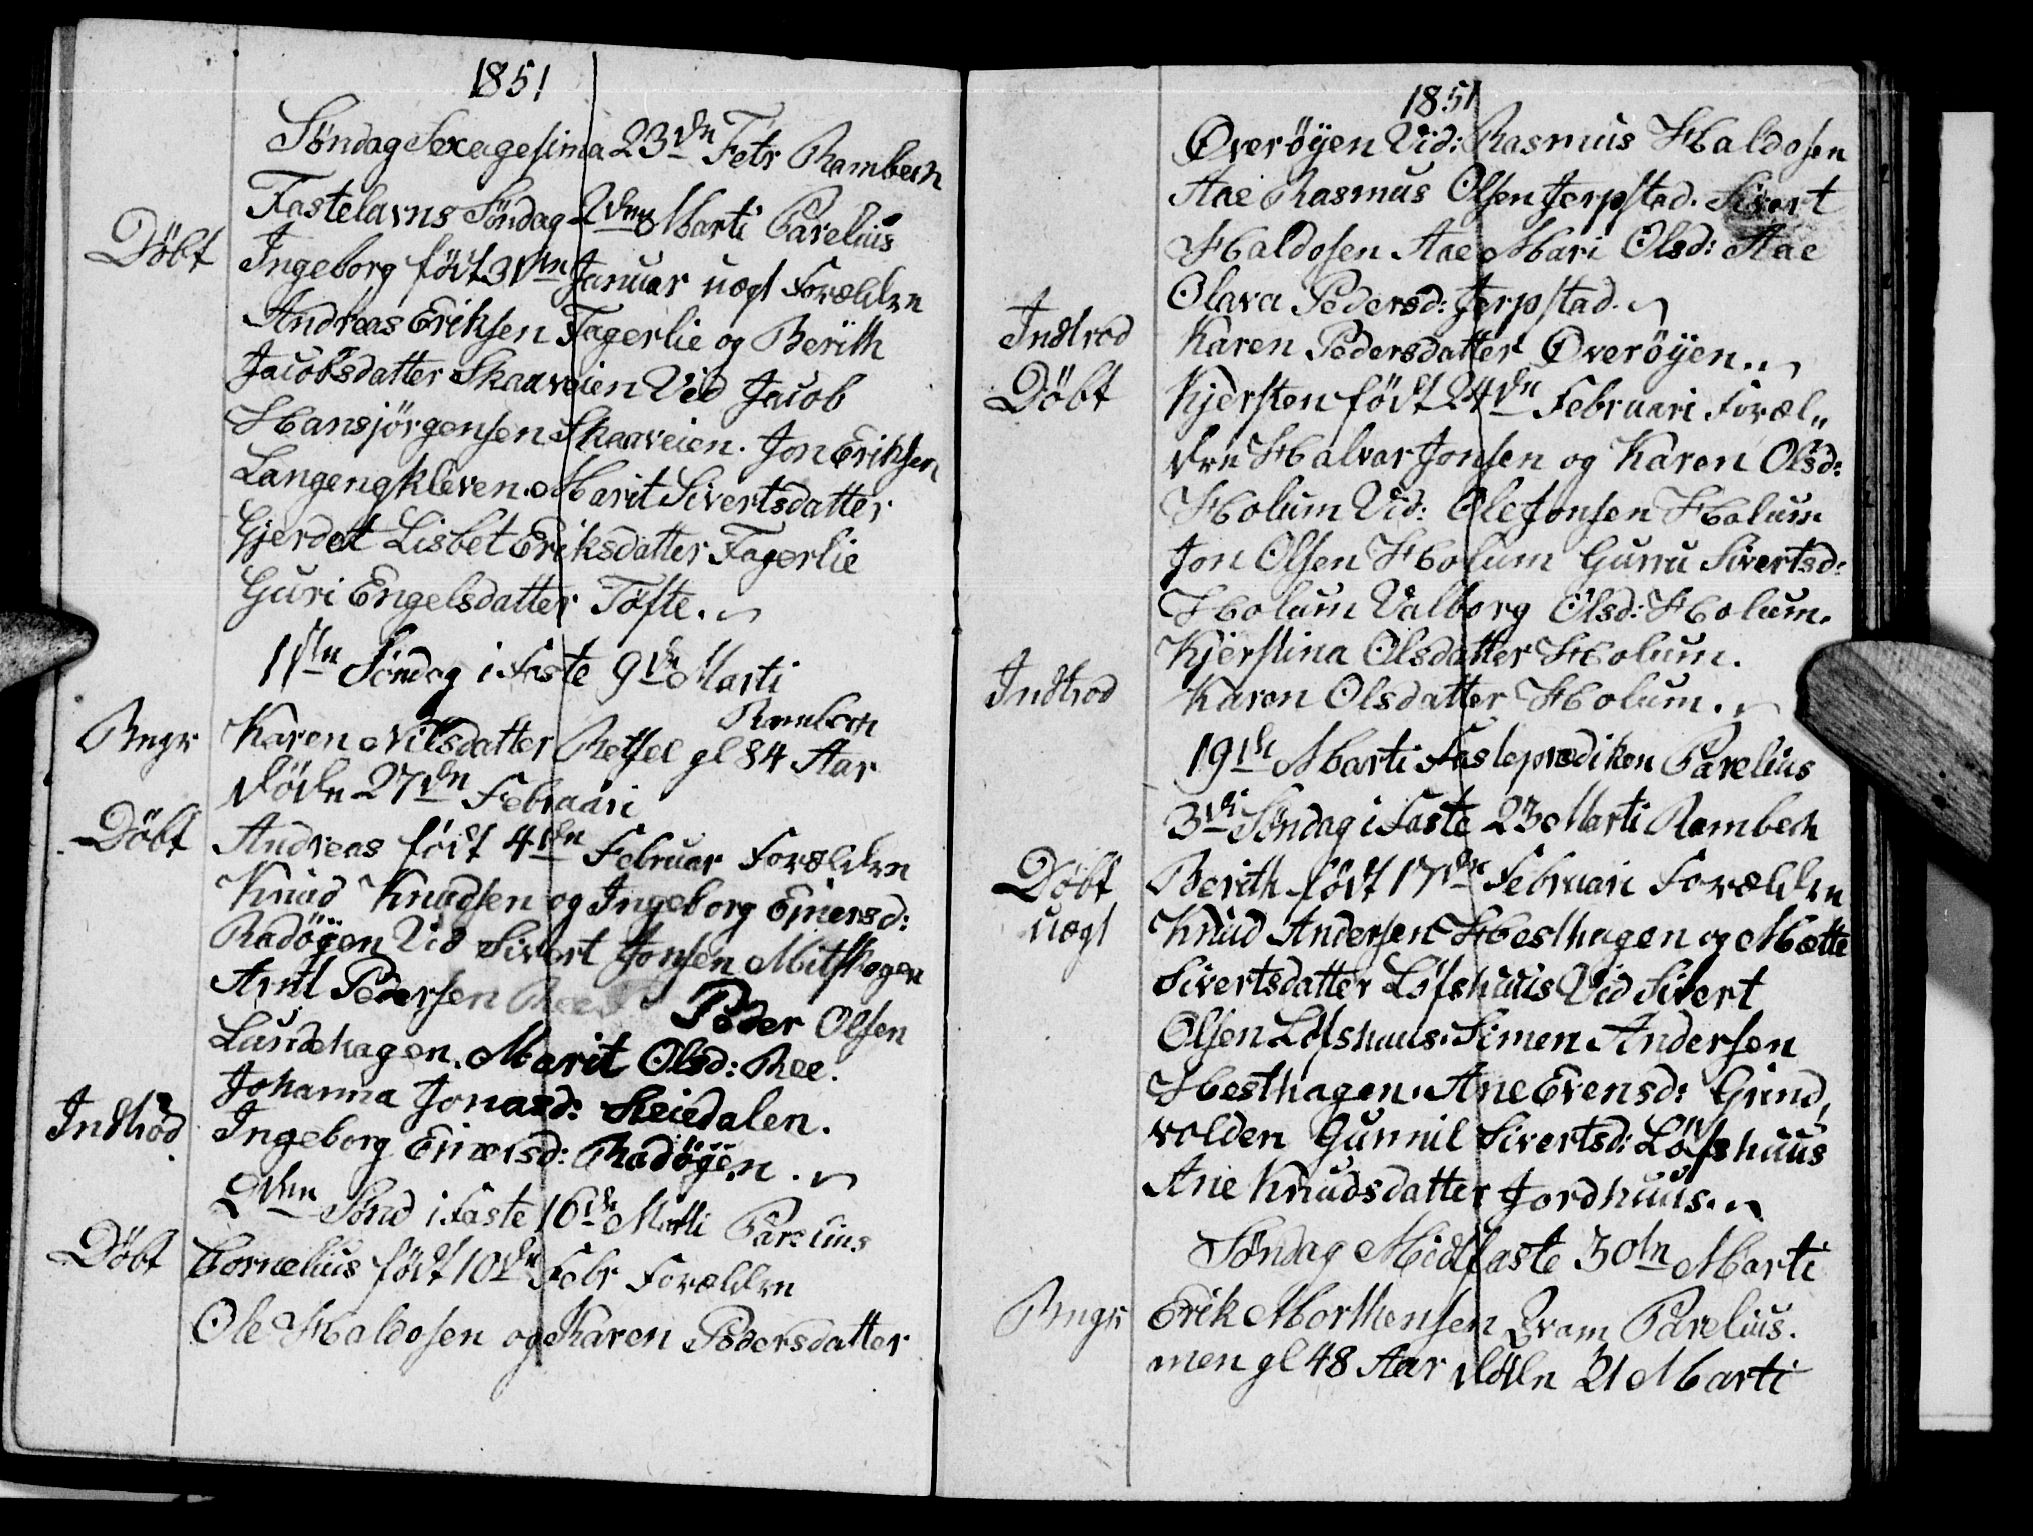 1851
Söndag Sexagesima 23den Febr Rambech
Fastelavns Söndag 2den Marti Parelius
Döbt Ingeborg födt 31ten Januar uegt Forældre
Andreas Eriksen Fagerlie og Berith
Jacobsdatter Skaaveien Vid Jacob
Hansjörgensen Skaaveien. Jon Eriksen
Langengkleven. Marit Sivertsdatter
Gjerdet Lisbet Eriksdatter Fagerlie
Guri Engelsdatter Töfte.
1ste Söndag i Faste 9de Marti
Rambech
Bngr Karen Nilsdatter Retsel gl 84 Aar
döde 27de Februari
Döbt Andreas födt 4de Februar Forældre
Knud Knudsen og Ingeborg Einersd:
Radöÿen Vid Sivert Jonsen Mitskogen
Arnt Pedersen Peder Olsen
Lundehagen. Marit Olsd: Ree.
Johanna Jonasd: Skeiedalen.
Indtröd Ingeborg Einersd: Radöÿen.
2den Sönd i Faste 16de Marti Parelius
Döbt Cornelius födt 10de Febr Forældre
Ole Haldosen og Karen Pedersdatter
1851
Overöÿen Vid: Rasmus Haldosen
Aae Rasmus Olsen Jerpstad. Sivert
Haldosen Aae Mari Olsd: Aae
Olava Pedersd: Jerpstad.
Indtrød Karen Pedersdatter Overöÿen.
Döbt Kjersten födt 24de Februari Foræl„
dre Halvar Jonsen og Karen Olsd:
Holum Vid: Ole Jonsen Holum
Jon Olsen Holum Gurru Sivertsd:
Holum Valborg Olsd: Holum.
Kjerstina Olsdatter Holum.
Indtrød Karen Olsdatter Holum.
19de Marti Fasteprædiken Parelius
3die Söndag i Faste 23 Marti Rambech
Döbt Berith födt 17de Februari Forældre
uegt Knud Andersen Hesthagen og Mette
Sivertsdatter Löfshuus Vid Sivert
Olsen Löfshuus. Simen Andersen
Hesthagen. Ane Evensd: Grind,
volden Gunnil Sivertsd: Löfshuus
Ane Knudsdatter Jordhuus.
Söndag Midfaste 30te Marti
Bngr Erik Morthensen Evam Parelius.
men gl 48 Aar döde 21 Marti